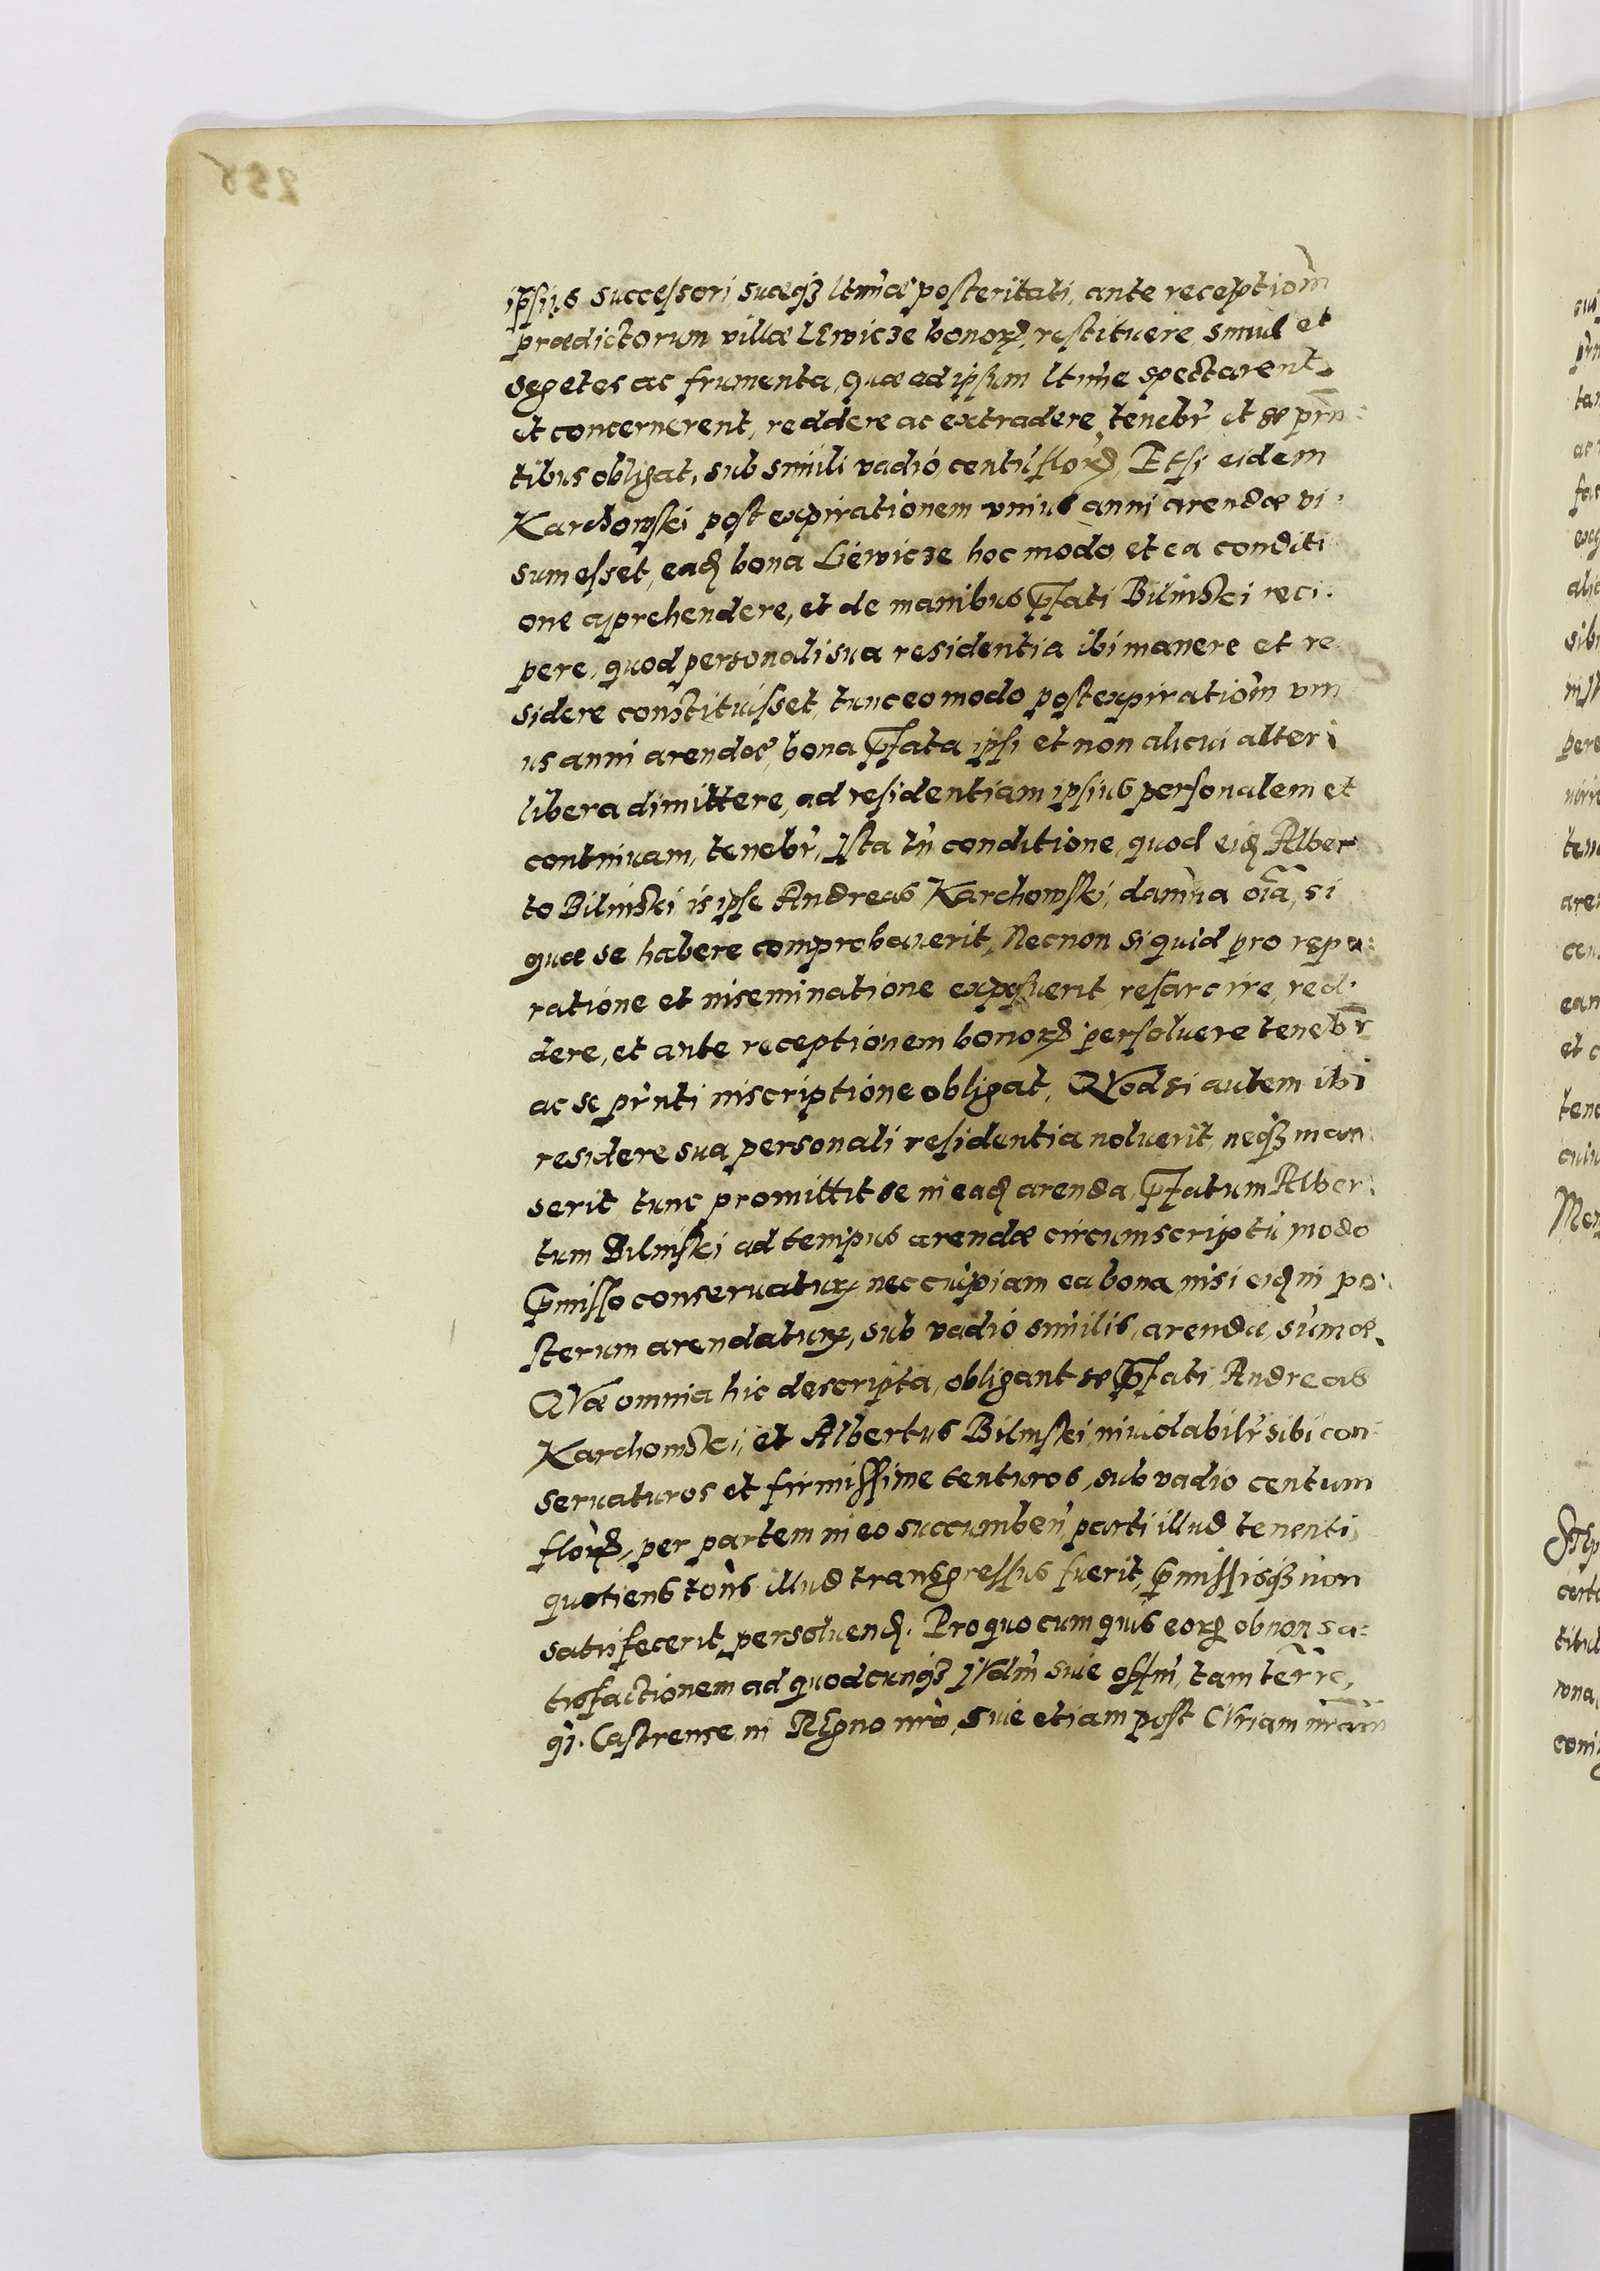 ipsius successori suæq3 ltimæ posteritati, ante receptiom̃
prædictorum villæ LEwicze bonorꝝ, restituere, simul et
segetes ac frumenta, quæ ad ipsum ltime spectarent,
et concernerent, reddere ac extradere tenebr̃ et se prñ:
tibus obligat, sub simili vadio centũ florꝝ, Et si eidem
Karchowski post expirationem vnius anni arendæ vi:
sum esset, eadꝫ bona Liewicze hoc modo, et ea conditi
one aprehendere, et de manibus p̃fati Bilinski reci:
pere, quod personali sua residentia ibi manere et re
sidere constituisset, tunc eo modo post expiratiom̃ vni
us anni arendæ, bona p̃fata ipsi et non alicui alteri
libera dimittere, ad residentiam ipsius personalem et
continuam, tenebr̃, Ista tñ conditione, quod eidꝫ Alber
to Bilinski is ipse Andreas Karchowski, damna oĩa, si
quæ se habere comprobauerit, Necnon si quid pro repa:
ratione et inseminatione exposuerit, resarcire, red:
dere, et ante receptionem bonorꝝ persoluere tenebr̃
ac se prñti inscriptione obligat, QVod si autem ibi
residere sua personali residentia noluerit, neq3 man:
serit tunc promittit se in eadꝫ arenda, p̃fatum Alber:
tum Bilinski ad tempus arendæ circumscriptũ modo
p̃misso conseruaturꝝ nec cuipiam ea bona, nisi eidꝫ in po:
sterum arendaturꝝ, sub vadio similis, arendæ, sum̃æ,
QVæ omnia hic descripta, obligant se p̃fati, Andreas
Karchowski, et Albertus Bilinski, inuiolabilr̃ sibi con:
seruaturos et firmissime tenturos, sub vadio centum
florꝝ, per partem in eo succumben̄, parti illud tenenti,
quotiens tons̃ illud transgressus fuerit, p̃missisq3 non
satisfecerit, persoluendꝫ. Pro quocumquis eorꝝ ob non sa:
tisfactionem ad quodcunq3 JVdm̃ siue offm̃, tam terrre,
q̃3. Castrense, in REgno nrõ, siue etiam post CVriam nram̃